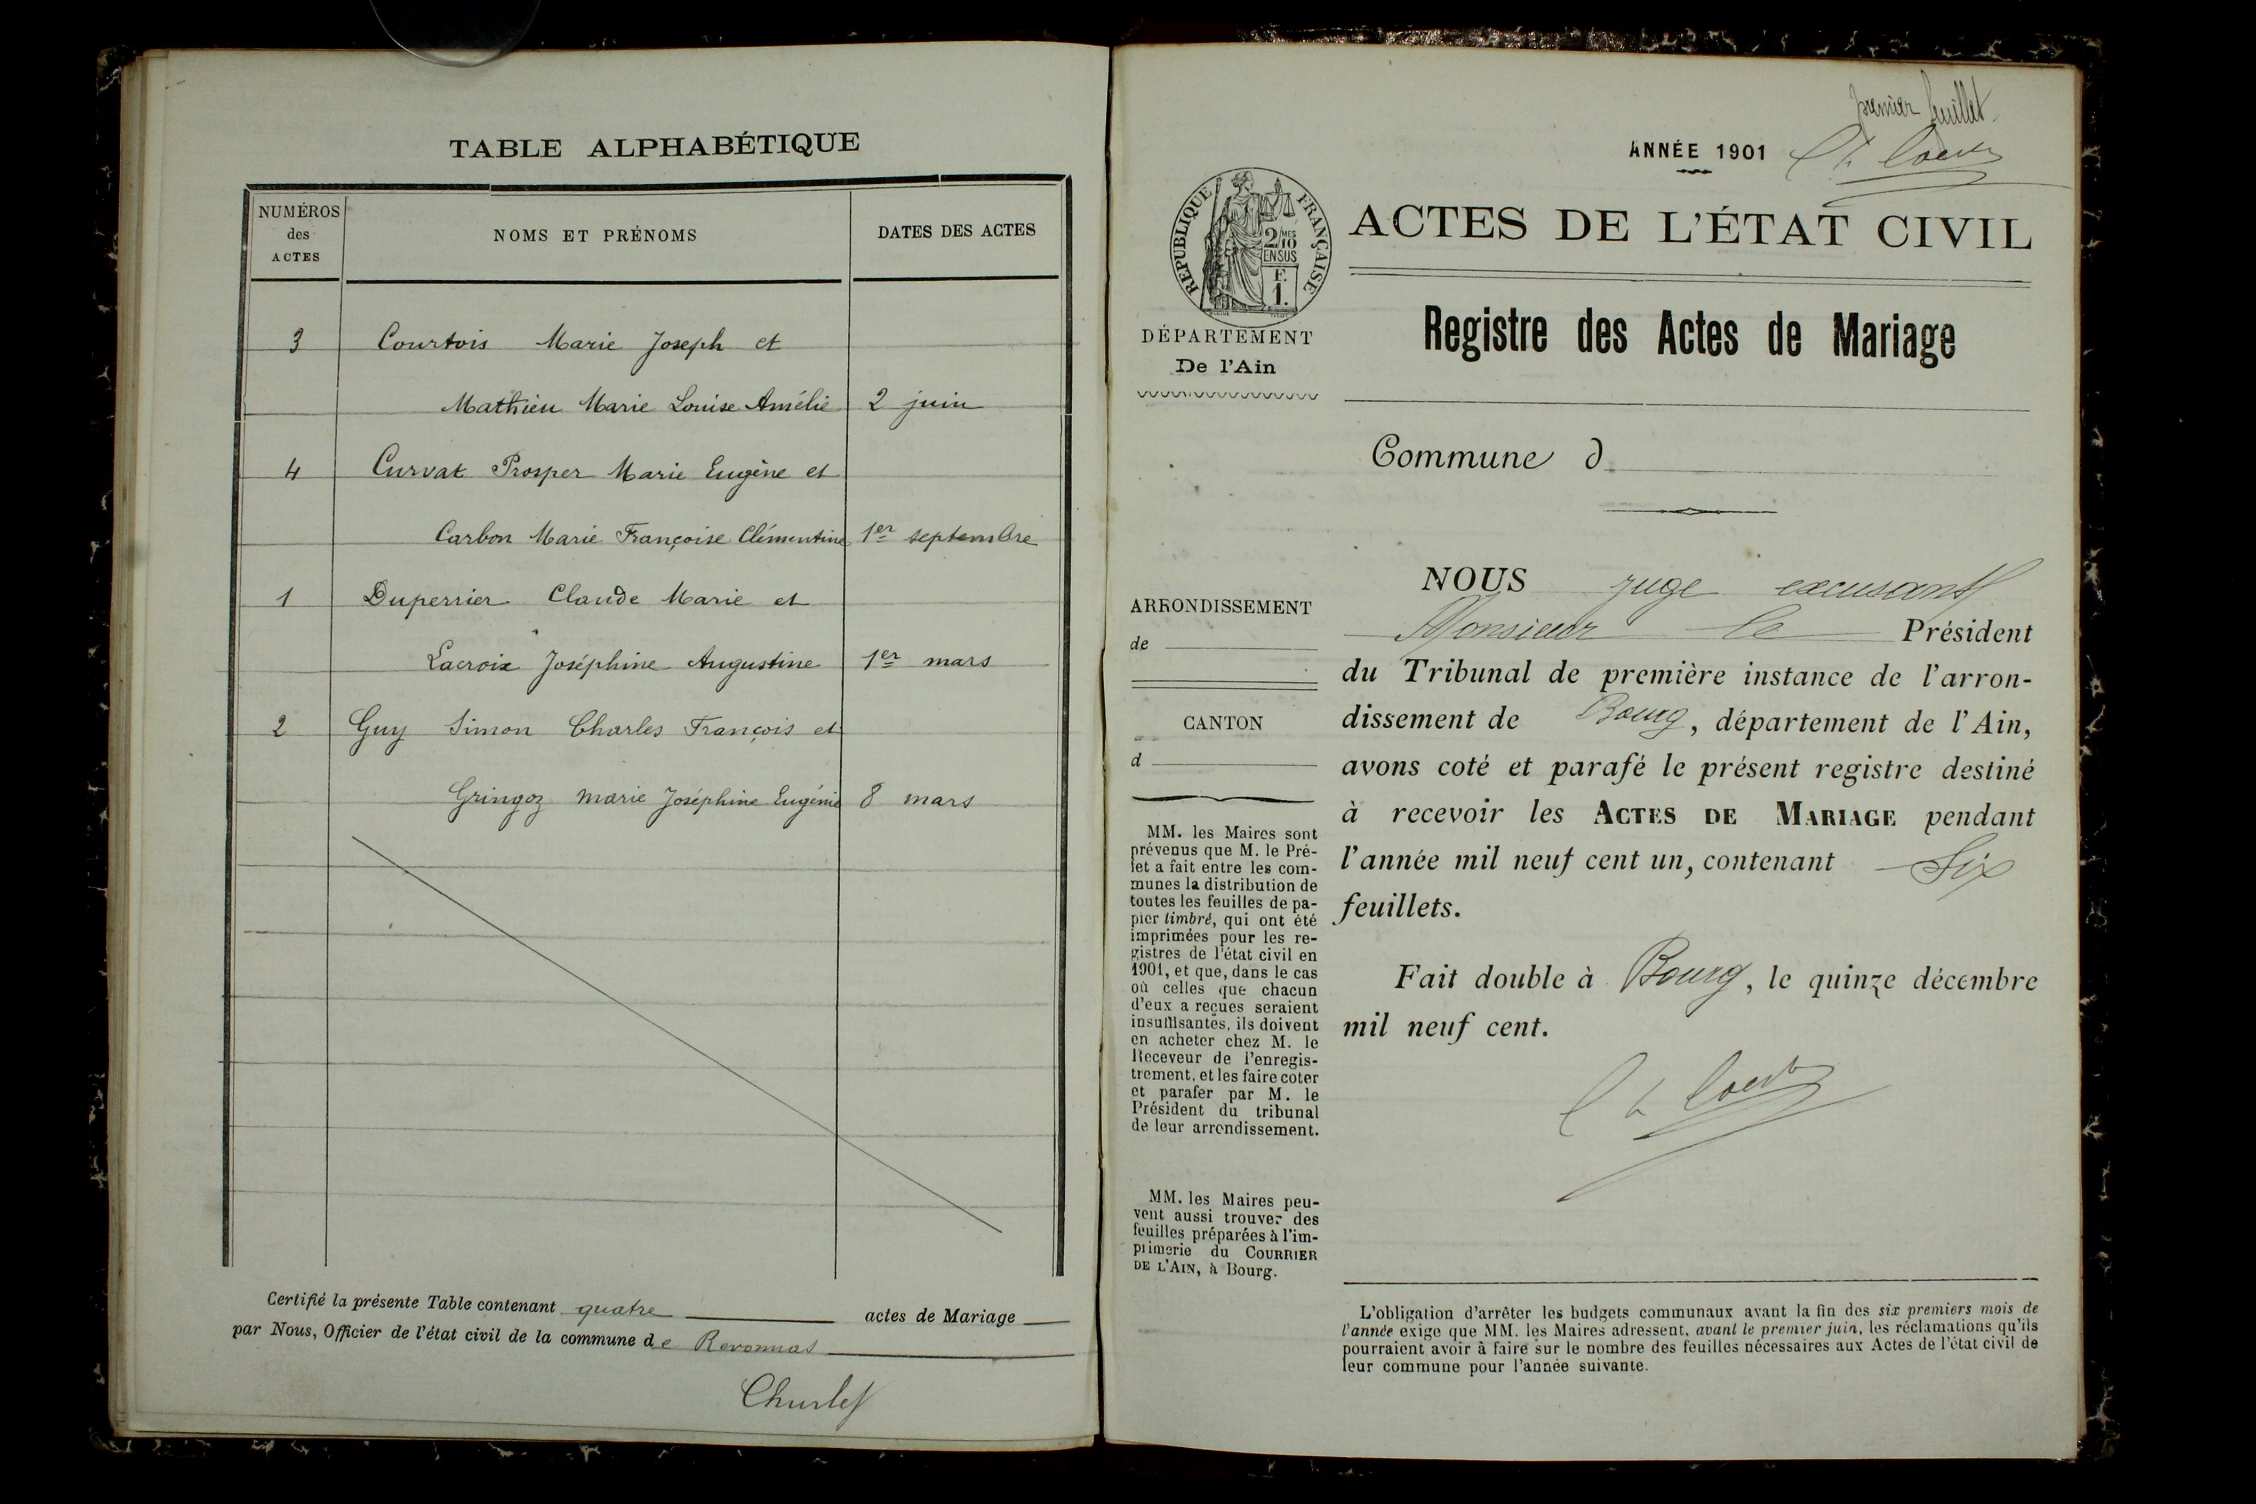 TABLE ALPHABÉTIQUE
NUMÉROS
des
ACTES
NOMS ET PRÉNOMS
DATES DES ACTES
3 Courtois Marie Joseph et
Mathieu Marie Louise Amélie 2 juin
4 Curvat Prosper Marie Eugène et
Carbon Marie Françoise Clémentine 1er septembre
1 Duperrier Claude Marie et
Lacroix Joséphine Augustine 1er mars
2 Guy Simon Charles François et
Gringoz Marie Joséphine Eugénie 8 mars
Certifié la présente Table contenant quatre actes de Mariage
par Nous, Officier de l'état civil de la commune de Revonnas
Churlet
premier feuillet
ANNÉE 1901
RÉPUBLIQUE FRANÇAISE
2/10
MES
EN SUS
F.
1.
DÉPARTEMENT
De l'Ain
ACTES DE L'ÉTAT CIVIL
Registre des Actes de Mariage
Commune d
ARRONDISSEMENT
de
CANTON
d
MM. les Maires sont
prévenus que M. le Pré-
fet a fait entre les com-
munes la distribution de
toutes les feuilles de pa-
pier timbré, qui ont été
imprimées pour les re-
gistres de l'état civil en
1901, et que, dans le cas
où celles que chacun
d'eux a reçues seraient
insuffisantes, ils doivent
en acheter chez M. le
Receveur de l'enregis-
trement, et les faire coter
et parafer par M. le
Président du tribunal
de leur arrondissement.
MM. les Maires peu-
vent aussi trouver des
feuilles préparées à l'im-
primerie du COURRIER
DE L'AIN, à Bourg.
NOUS juge excusant
Monsieur le Président
du Tribunal de première instance de l'arron-
dissement de Bourg, département de l'Ain,
avons coté et parafé le présent registre destiné
à recevoir les ACTES DE MARIAGE pendant
l'année mil neuf cent un, contenant Six
feuillets.
Fait double à Bourg, le quinze décembre
mil neuf cent.
L'obligation d'arrêter les budgets communaux avant la fin des six premiers mois de
l'année exige que MM. les Maires adressent, avant le premier juin, les réclamations qu'ils
pourraient avoir à faire sur le nombre des feuilles nécessaires aux Actes de l'état civil de
leur commune pour l'année suivante.